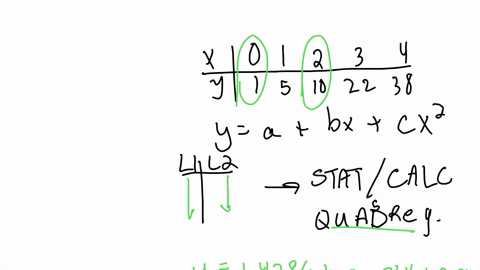 x | 0 1 2 3 4
y | 1 5 10 22 38
y = a + bx + cx²
L1 | L2 → STAT/CALC
5
QUADReg.